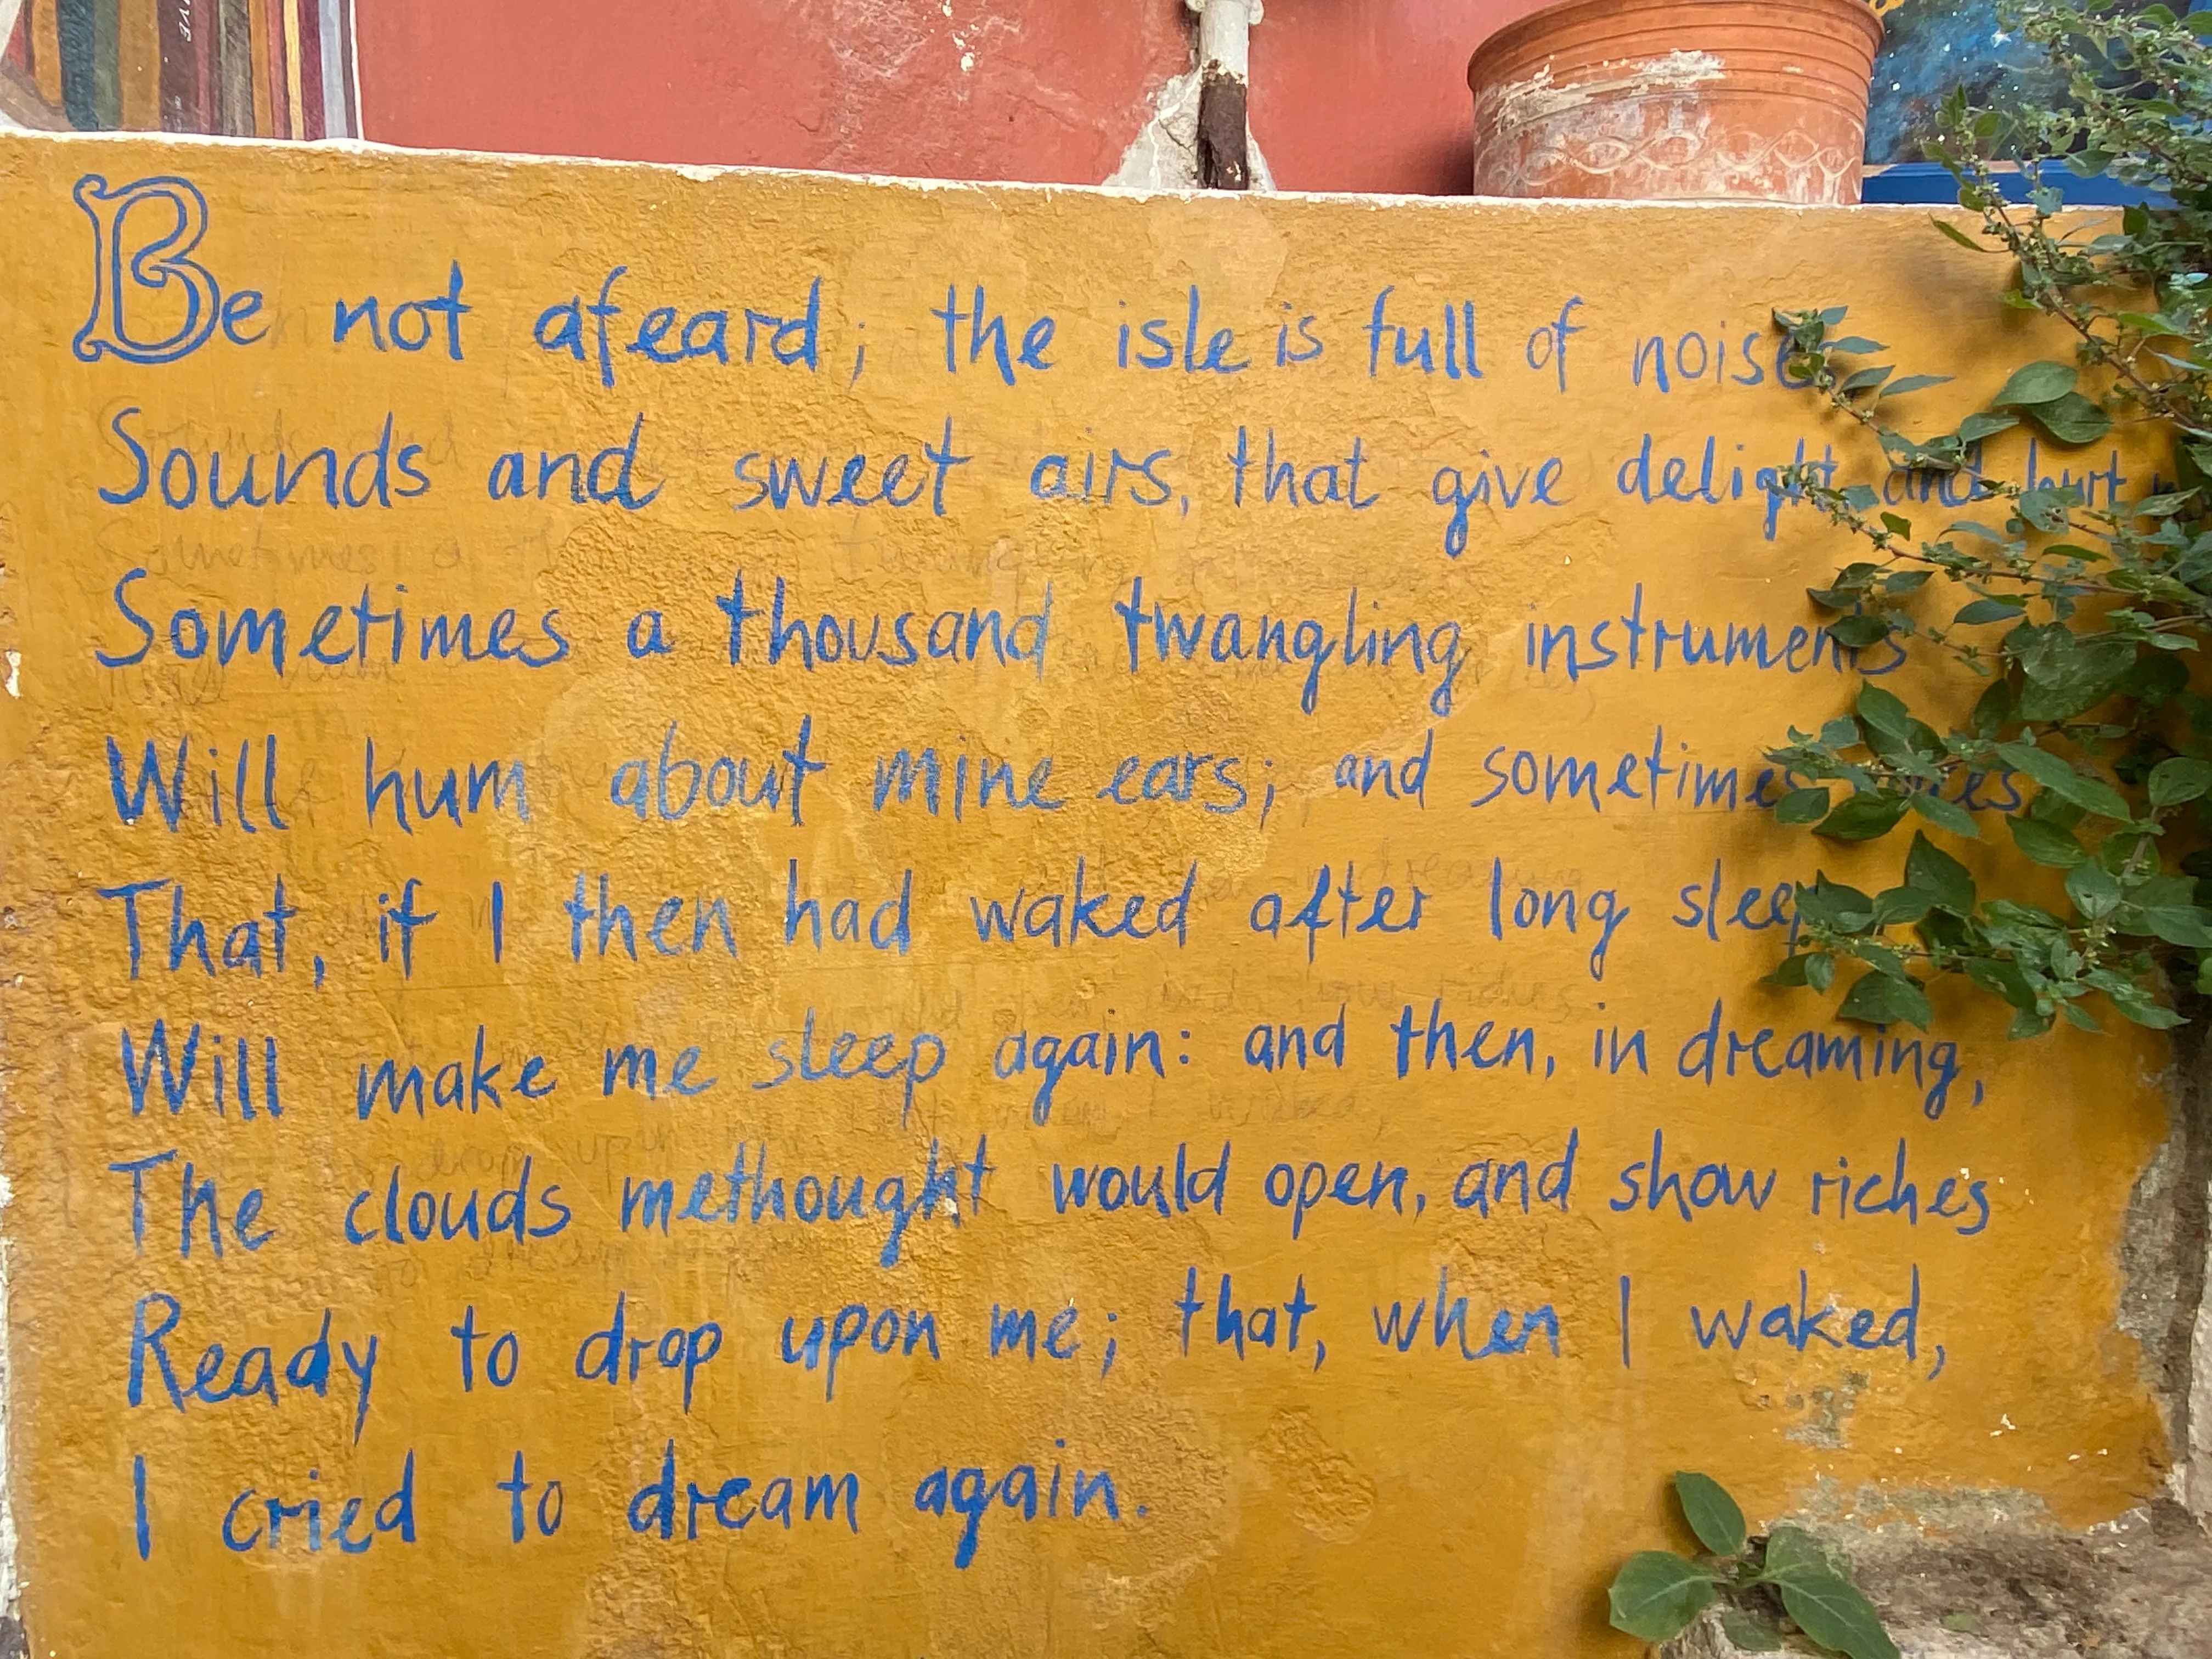 Be not afeard; the isle is full of noises
Sounds and sweet airs, that give delight and hurt
Sometimes a thousand twangling instruments
Will hum about mine ears; and sometimes
That, if I then had waked after long sleep
Will make me sleep again: and then, in dreaming,
The clouds methought would open, and show riches
Ready to drop upon me; that, when I waked,
I cried to dream again.